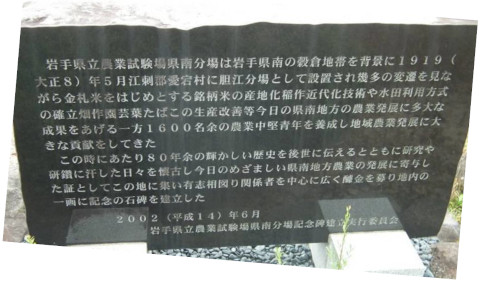 岩手県立農業試験場県南分場は岩手県南の穀倉地帯を背景に1919(
大正8)年5月江刺郡愛宕村に胆江分場として設置され幾多の変遷を見な
がら金札米をはじめとする銘柄米の産地化稲作近代化技術や水田利用方式
の確立畑作園芸葉たばこの生産改善等今日の県南地方の農業発展に多大な
成果をあげる一方1600名余の農業中堅青年を養成し地域農業発展に大
きな貢献をしてきた
この時にあたり80年余の輝かしい歴史を後世に伝えるとともに研究や
研鑽に汗した日々を懐古し今日のめざましい県南地方農業の発展に寄与し
た証としてこの地に集い有志相図り関係者を中心に広く醵金を募り地内の
一画に記念の石碑を建立した
2002(平成14)年6月
岩手県立農業試験場県南分場記念碑建立実行委員会